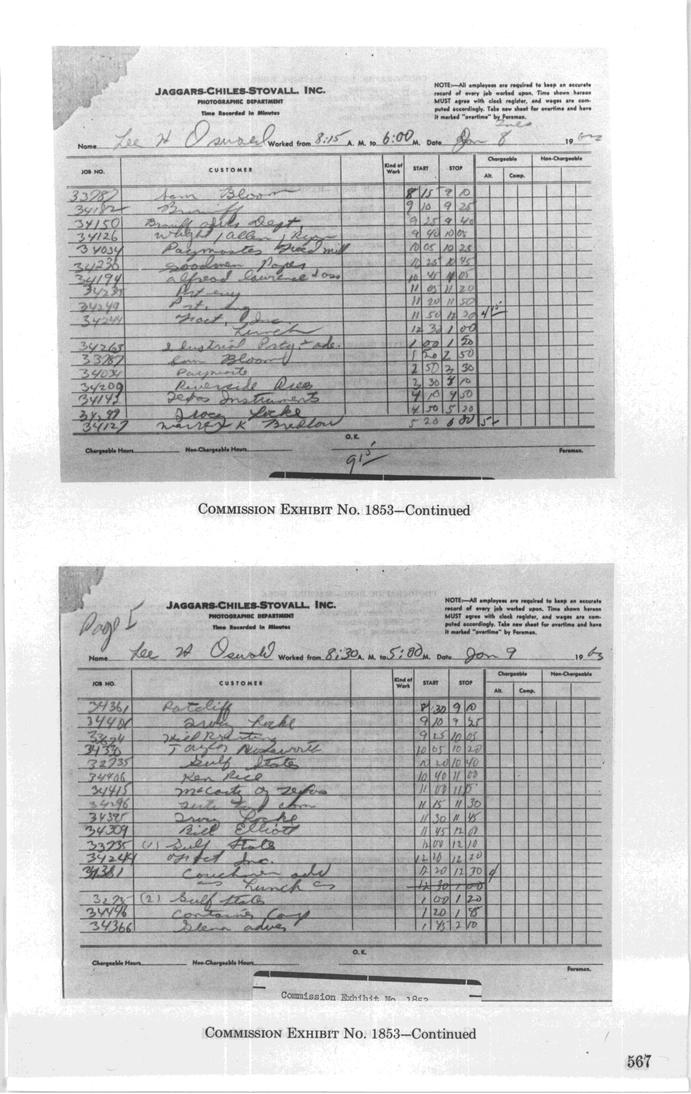 JAGGARS-CHILES-STOVALL, INC.
PHOTOGRAPHIC DEPARTMENT
Time Recorded in Minutes
NOTE:—All employees are required to keep an accurate
record of every job worked upon. Time shown hereon
MUST agree with clock register, and wages are com-
puted accordingly. Take new sheet for overtime and have
it marked "overtime" by Foreman.
Name Lee H Oswald Worked from 8:15 A. M. to 6:00 M. Date Jan 8 19
JOB NO. CUSTOMER Kind of Work START STOP Chargeable Non-Chargeable
Alt. Comp.
33787 Sam Bloom 8 15 9 10
9 10 9 25
34150 Dept 9 25 9 40
34126 Wright, Allen, Ryan 9 40 10 05
34034 Paymaster Feed mill 10 05 10 25
34230 Goodman 10 25 10 45
34194 Alfred Lawrence 10 45 11 05
11 05 11 20
34249 11 20 11 50
34244 Fact, Inc. 11 50 12 20
Lunch 12 30 1 00
34265 1 00 1 20
33787 Sam Bloom 1 20 2 50
34034 Paymaster 2 50 30
34209 Riverside 30 10
34143 Texas Instruments 4 10 4 50
Tracy Locke 4 50 5 20
34127 Warren K 5 20 6 00
O.K.
Chargeable Hours Non-Chargeable Hours Foreman.
COMMISSION EXHIBIT NO. 1853—Continued
JAGGARS-CHILES-STOVALL, INC.
PHOTOGRAPHIC DEPARTMENT
Time Recorded in Minutes
NOTE:—All employees are required to keep an accurate
record of every job worked upon. Time shown hereon
MUST agree with clock register, and wages are com-
puted accordingly. Take new sheet for overtime and have
it marked "overtime" by Foreman.
Page I
Name Lee H Oswald Worked from 8:30 A. M. to 5:00 M. Date Jan 9 1963
JOB NO. CUSTOMER Kind of Work START STOP Chargeable Non-Chargeable
Alt. Comp.
34361 Ratcliff 8 30 9 10
Tracy Locke 9 10 9 25
9 25 10 05
Taylor 10 05 10 20
Gulf States 10 20 10 40
34406 Ken Rice 10 40 11 00
34415 McCarty of Texas 11 00 11 15
34296 11 15 11 30
34385 Tracy Locke 11 30 11 45
34309 Bill Elliott 11 45 12 00
(1) Gulf State 12 00 12 10
34244 Fact Inc. 12 10 12 20
34381 Couchman adv 12 20 12 30
Lunch 12 30 1 00
(2) Gulf States 1 00 1 20
34446 Container Corp 1 20 1 45
34366 Glenn adver 1 45 2 10
O.K.
Chargeable Hours Non-Chargeable Hours Foreman.
Commission Exhibit No. 1853
COMMISSION EXHIBIT NO. 1853—Continued
567